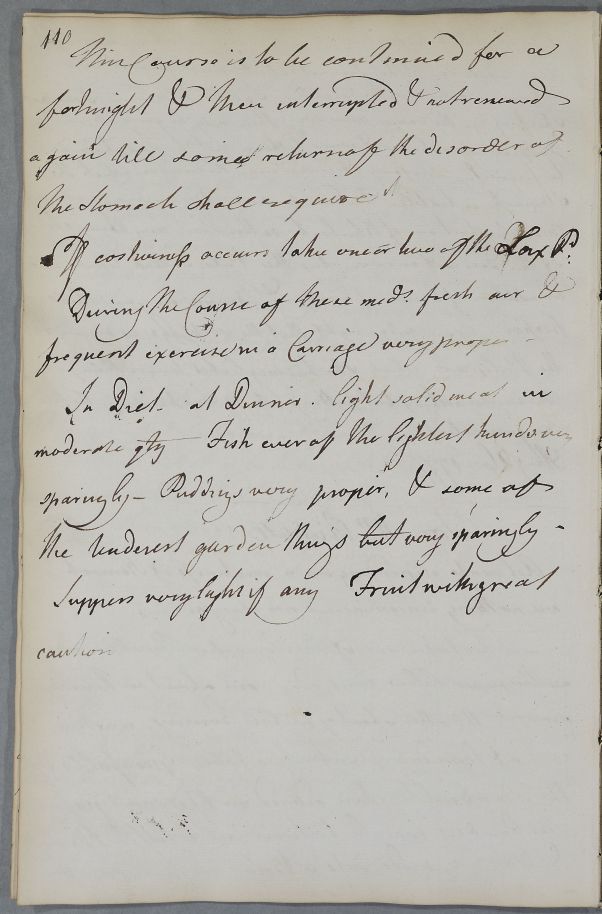 110
This Course is to be continued for a
fortnight & then interrupted & not renewed
again till some return of the disorder of
the Stomach shall require it
If costiveness occurs take one or two of the Lax Ps.
During the Course of these meds. fresh air &
frequent exercise in a Carriage very proper -
In Diet - at Dinner. light solid meat in
moderate qty - Fish even of the lightest kinds very
sparingly - Puddings very proper, & some of
the tenderest garden things but very sparingly -
Suppers very light if any Fruit with great
caution